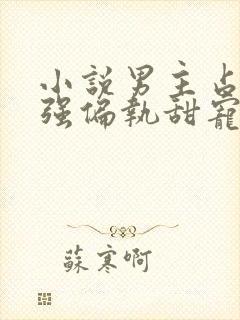 小説男主占
强偏執甜寵
蘇寒啊